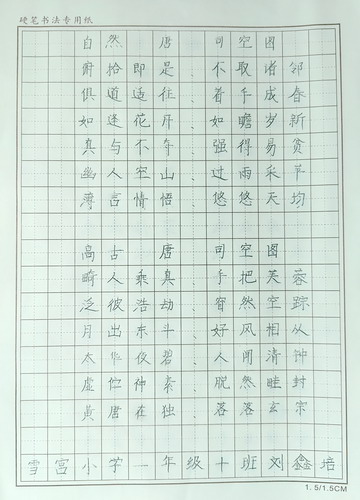 硬笔书法专用纸
自然 唐 司空图
俯拾即是、不取诸邻
俱道适往、着手成春
如逢花开、如瞻岁新
真与不夺、强得易贫
幽人空山、过雨采苹
薄言情悟、悠悠天均
高古 唐 司空图
畸人乘真、手把芙蓉
泛彼浩劫、窅然空踪
月出东斗、好风相从
太华夜碧、人闻清钟
虚伫神素、脱然畦封
黄唐在独、落落玄宗
雪宫小学一年级十班刘鑫培
1.5/1.5CM